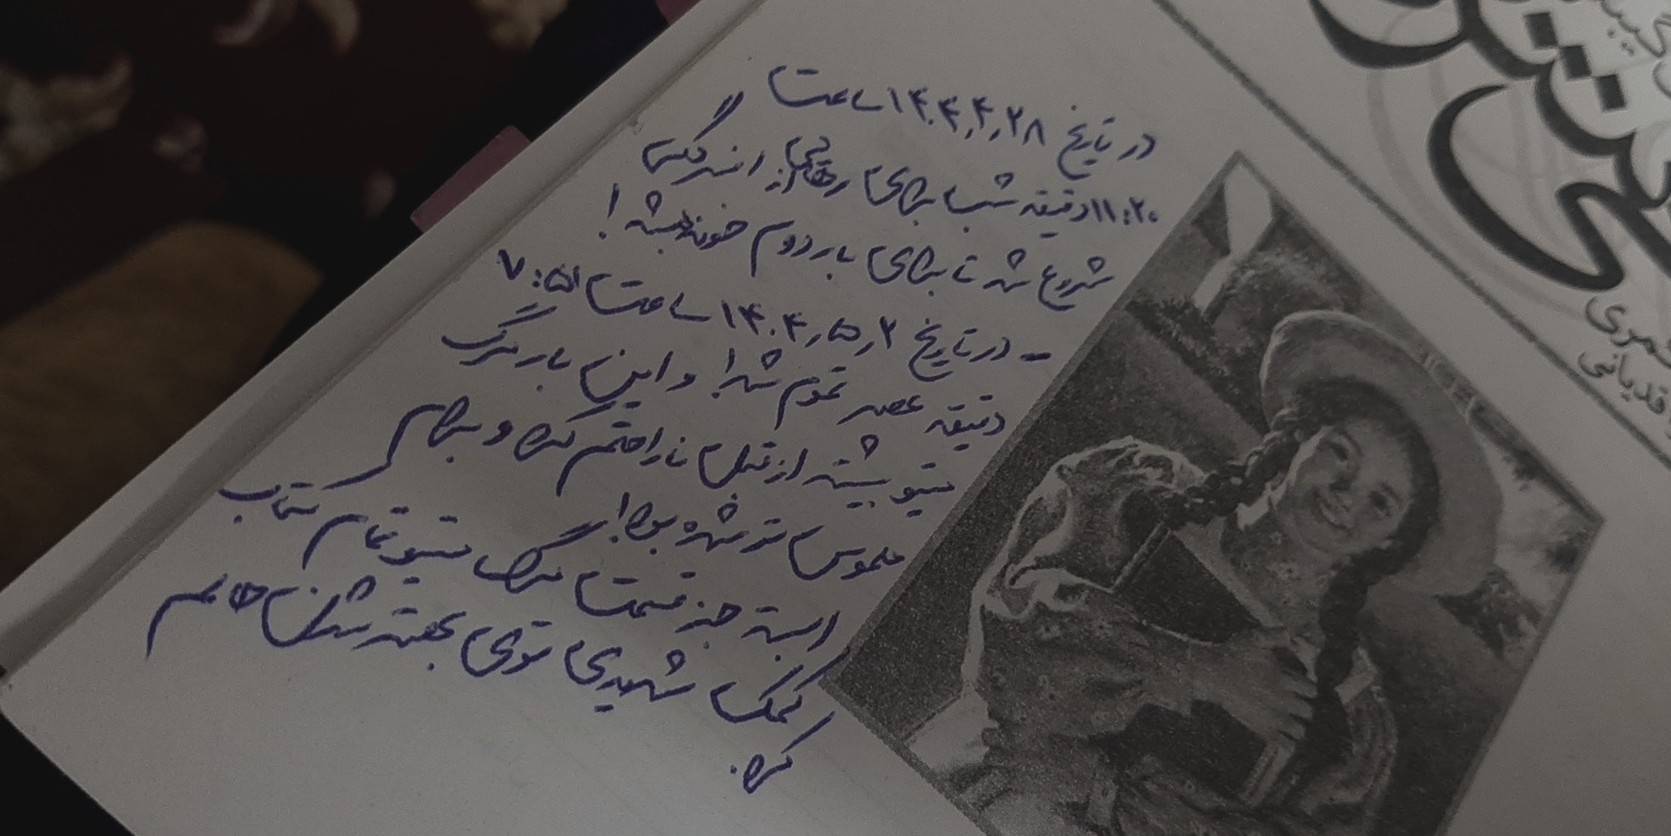 در تاریخ ۱۴۰۴٫۴٫۲۸ ساعت
۱۱:۲۰ دقیقه شب برای رهایی از افسردگی
شروع شد تا برای بار دوم خونده بشه!
- در تاریخ ۱۴۰۴٫۵٫۲ ساعت ۷:۵۱
دقیقه عصر تموم شد! و این بار مرگ
متیو بیشتر از قبل ناراحتم کرد و برام
ملموس تر شده بود!
البته جز قسمت مرگ متیو تمام کتاب
کمک شدیدی توی بهتر شدن حالم
کرد.
قدیانی